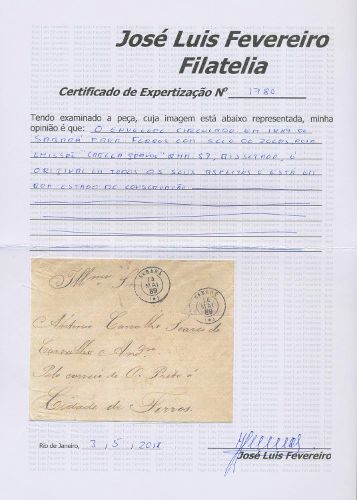 José Luis Fevereiro
Filatelia
Certificado de Expertização Nº 1780
Tendo examinado a peça, cuja imagem está abaixo representada, minha
opinião é que: O ENVELOPE CIRCULADO EM 1889 DE
SABARÁ PARA FERROS COM SELO DE 200RS, DA
EMISSÃO RHM. 57, BISSETADO, É
ORIGINAL EM TODOS OS SEUS ASPECTOS E ESTÁ EM
BOM ESTADO DE CONSERVAÇÃO.
Illmo. Sr.
SABARÁ
14
MAI
89
SABARÁ
14
MAI
89
Antonio Carvalho Soares de
Carvalho e
Pelo correio de O. Preto á
Cidade de Ferros.
Rio de Janeiro, 3, 5, 2018
José Luis Fevereiro